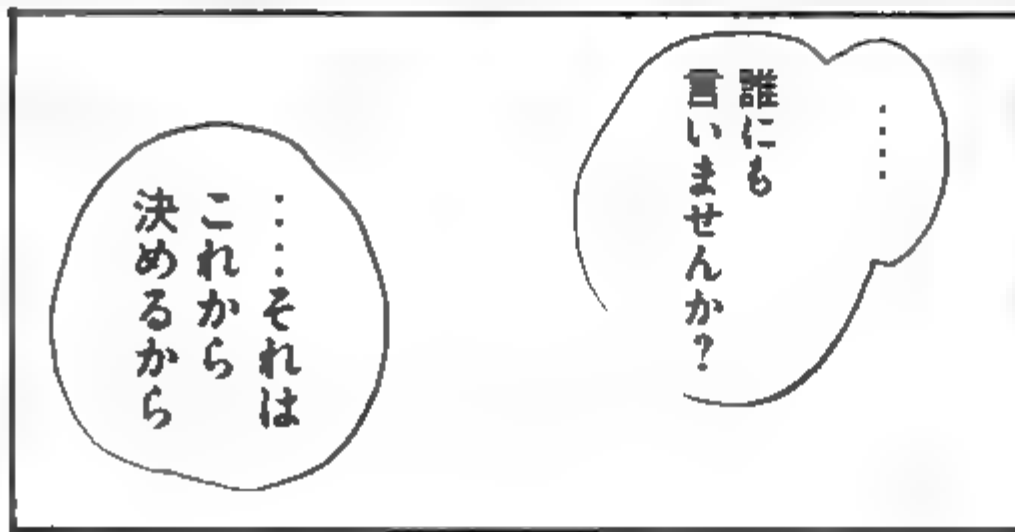 ‥‥
誰にも
言いませんか?
‥‥それは
これから
決めるから